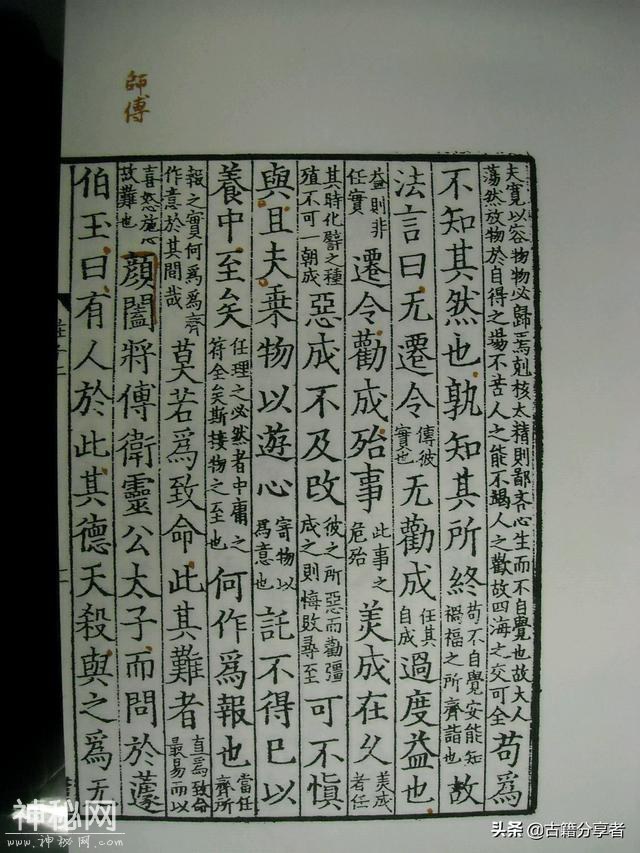 師傅
夫寛以容物物必歸焉剋核太精則鄙吝心生而不自覺也故大人蕩然放物於自得之塲不苦人之能不竭人之歡故四海之交可全苟為
不知其然也孰知其所終苟不自覺安能知禍福之所齊詣也故
法言曰无遷令傳彼實也无勸成任其自成過度益也
益則非任實遷令勸成殆事此事之危殆美成在久美成者任
其時化譬之種殖不可一朝成惡成不及改彼之所惡而勸彊成之則悔敗尋至可不慎
與且夫乗物以遊心寄物以為意也託不得已以
養中至矣任理之必然者中庸之符全矣斯接物之至也何作為報也當任齊所
報之實何為為齊作意於其間哉莫若為致命此其難者直為致命最易而以
喜怒施心故難也顔闔將傅衛靈公太子而問於蘧
伯玉曰有人於此其德天殺與之為无
神秘网
www.神秘网.com
头条 @古籍分享者